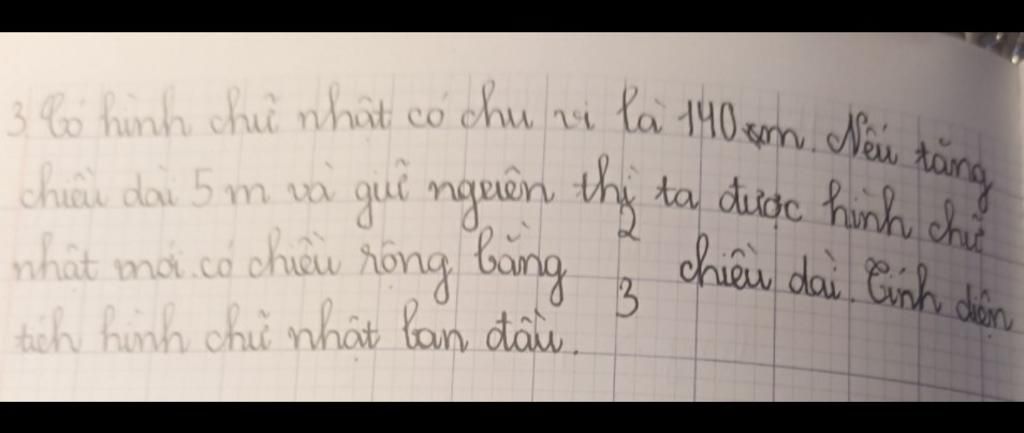 3 Có hình chữ nhật có chu vi là 140 m. Nếu tăng
chiều dài 5 m và giữ nguyên thì ta được hình chữ
nhật mới có chiều rộng bằng 2/3 chiều dài. Tính diện
tích hình chữ nhật ban đầu.